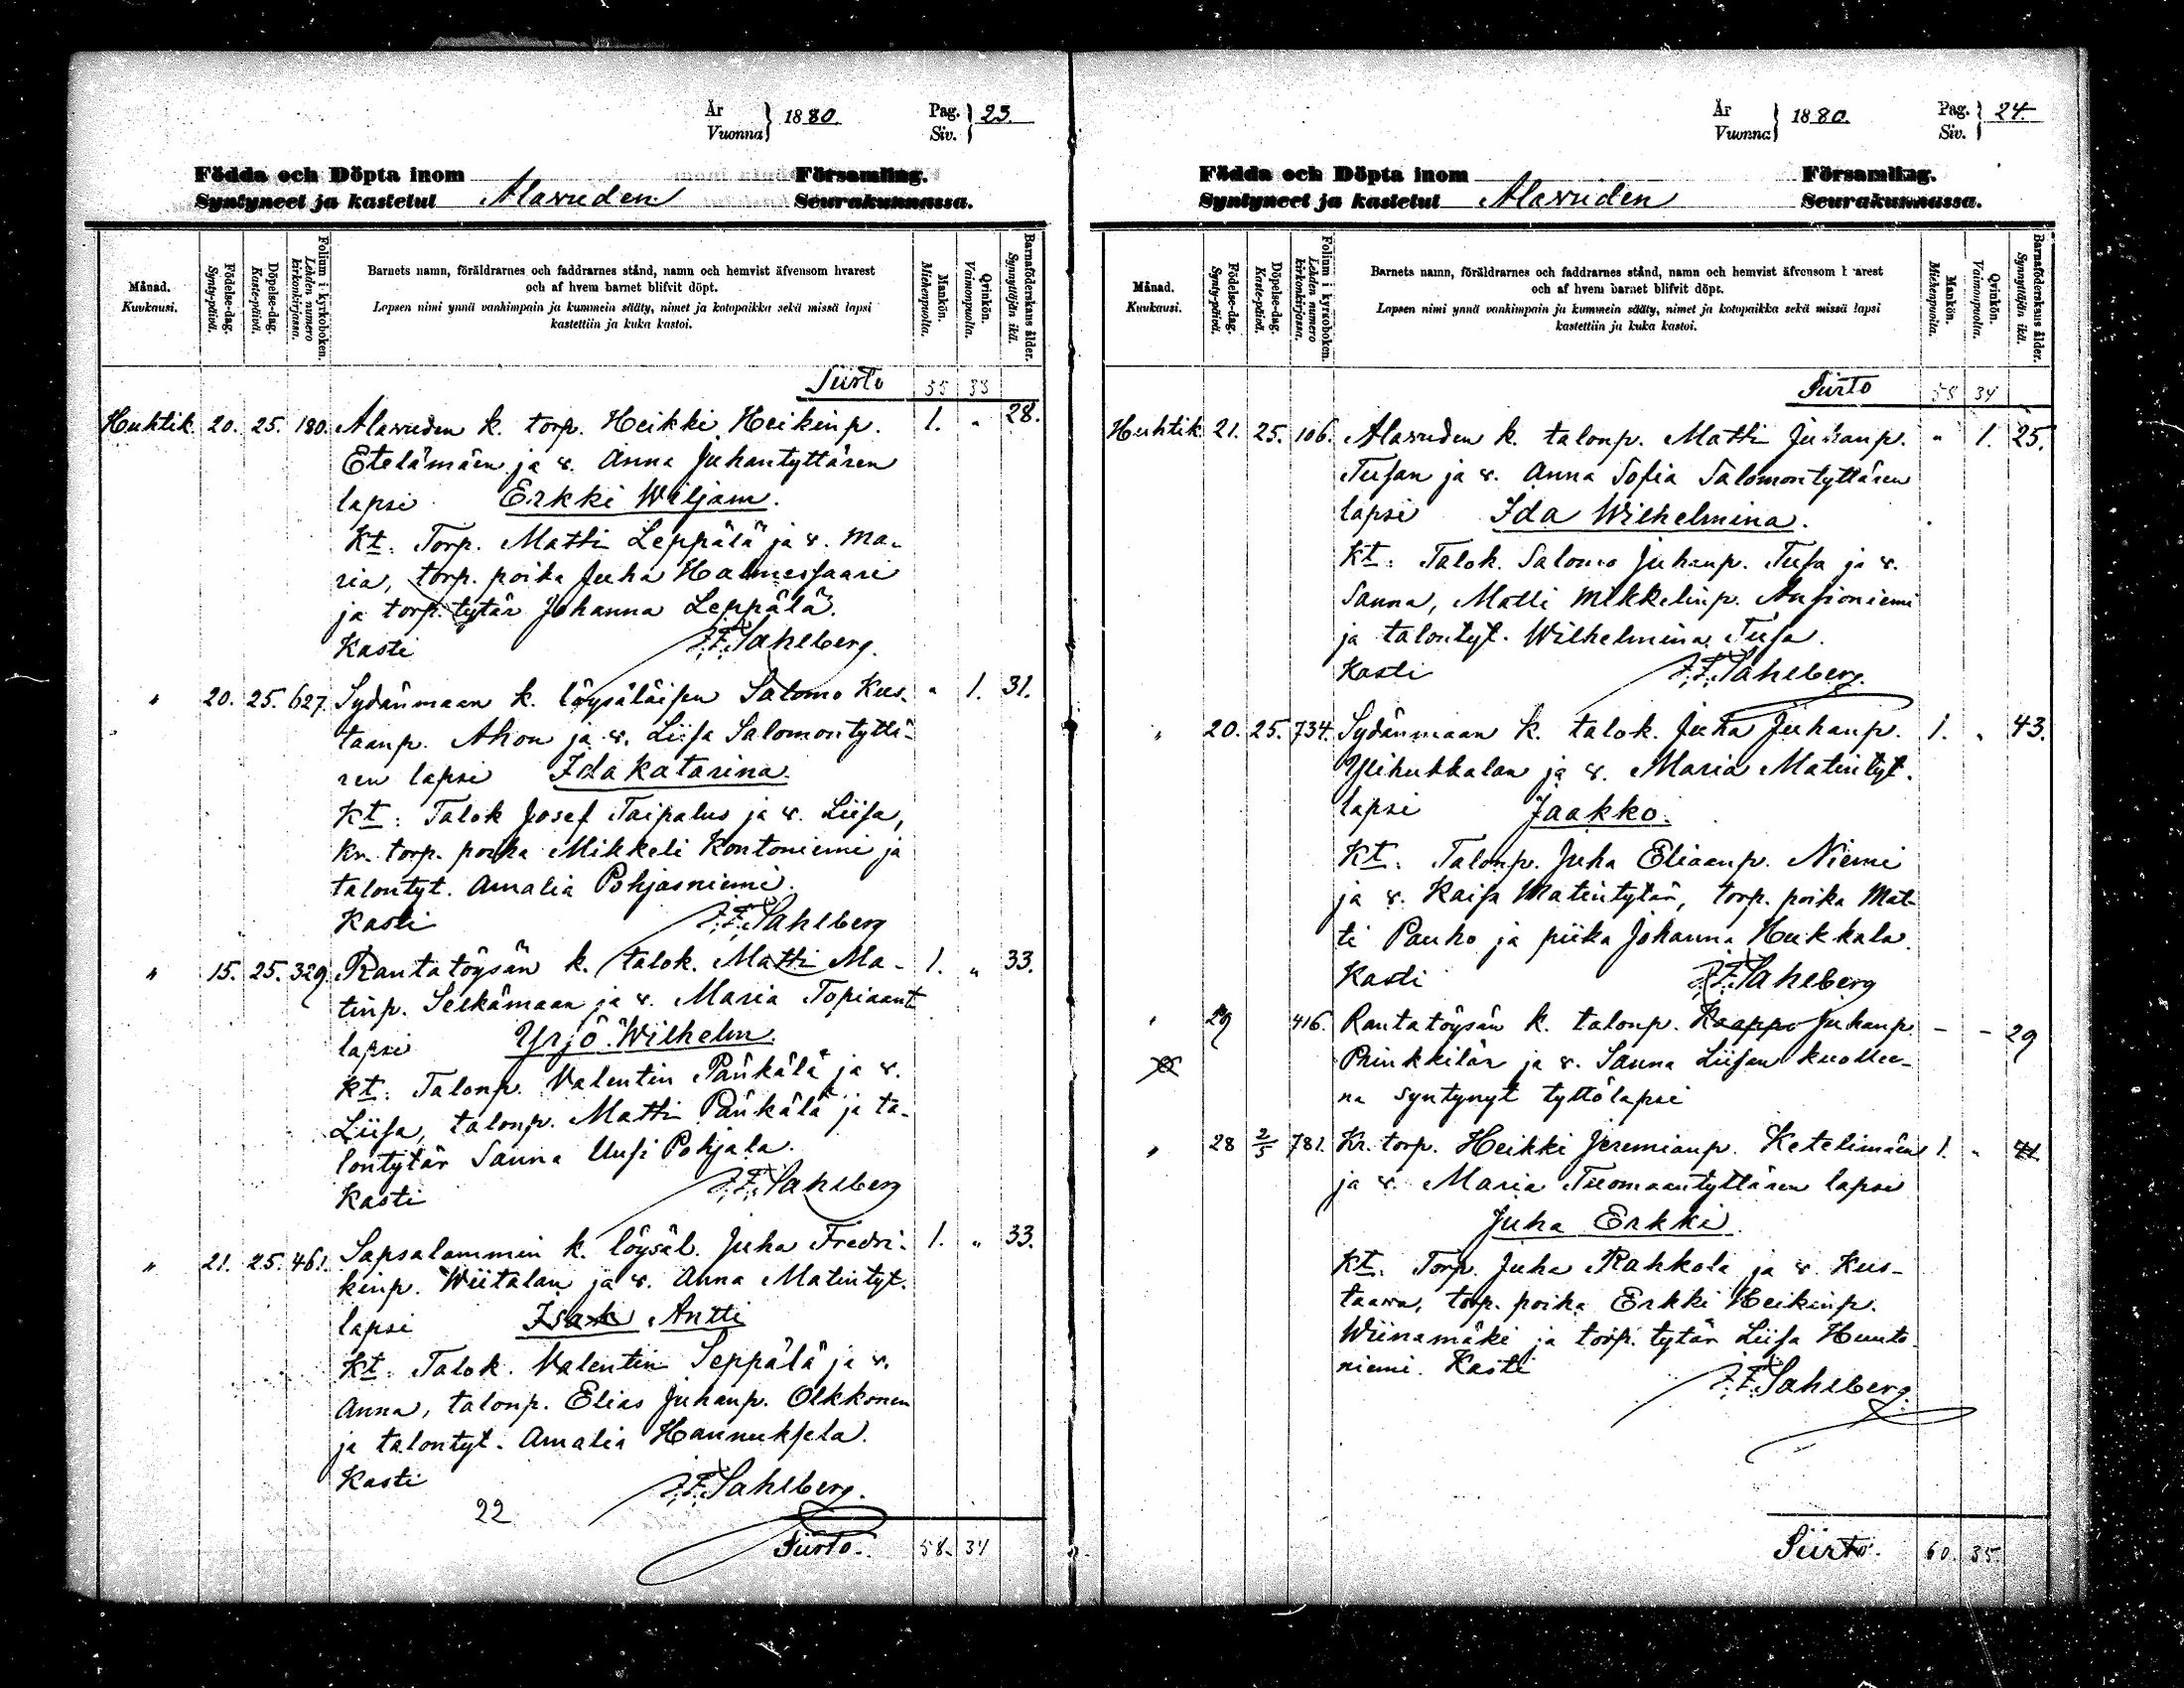 År
Vuonna } 1880.
Pag.
Siv. } 23.
Födda och Döpta inom Församling.
Syntyneet ja kastetut Alavuden Seurakunnassa.
Månad.
Kuukausi.
Födelse-dag.
Synty-päivä.
Döpelse-dag.
Kaste-päivä.
Folium i kyrkoboken.
Lehden numero kirkonkirjassa.
Barnets namn, föräldrarnes och faddrarnes stånd, namn och hemvist äfvensom hvarest
och af hvem barnet blifvit döpt.
Lapsen nimi ynnä vanhimpain ja kummein sääty, nimet ja kotopaikka sekä missä lapsi
kastettiin ja kuka kastoi.
Mankön.
Miehenpuolta.
Qvinkön.
Vaimonpuolta.
Barnaföderskans ålder.
Synnyttäjän ikä.
Siirto 55 33
Huhtik. 20. 25. 180. Alavuden k. torp. Heikki Heikinp. 1. " 28.
Etelämäen ja v. Anna Juhantyttären
lapsi Erkki Wiljam.
Kt: Torp. Matti Leppälä ja v. Ma-
ria, torp. poika Juha Halmessaari
ja torp. tytär Johanna Leppälä.
Kasti J.F. Sahlberg.
" 20. 25. 627. Sydänmaan k. löysäläisen Salomo Kus- " 1. 31.
taanp. Ahon ja v. Liisa Salomontyttä-
ren lapsi Ida Katarina.
Kt: Talok Josef Taipalus ja v. Liisa,
Kr. torp. poika Mikkeli Kontoniemi ja
talontyt. Amalia Pohjasniemi.
Kasti J.F. Sahlberg
" 15. 25. 329. Rantatöysän k. talok. Matti Ma- 1. " 33.
tinp. Selkämaan ja v. Maria Topiaant
lapsi Yrjö Wilhelm.
Kt: Talonp. Valentin Pänkälä ja v.
Liisa, talonp. Matti Pänkälä ja ta-
lontytär Sanna Uusi Pohjala.
Kasti J.F. Sahlberg
" 21. 25. 461. Sapsalammin k. löysäl. Juha Fredri- 1. " 33.
kinp. Wiitalan ja v. Anna Matintyt.
lapsi Isak Antti
Kt: Talok. Valentin Seppälä ja v.
Anna, talonp. Elias Juhanp. Olkkonen
ja talontyt. Amalia Hannuksela.
Kasti J.F. Sahlberg.
22
Siirto. 58. 34
År
Vuonna } 1880.
Pag.
Siv. } 24.
Födda och Döpta inom Församling.
Syntyneet ja kastetut Alavuden Seurakunnassa.
Månad.
Kuukausi.
Födelse-dag.
Synty-päivä.
Döpelse-dag.
Kaste-päivä.
Folium i kyrkoboken.
Lehden numero kirkonkirjassa.
Barnets namn, föräldrarnes och faddrarnes stånd, namn och hemvist äfvensom hvarest
och af hvem barnet blifvit döpt.
Lapsen nimi ynnä vanhimpain ja kummein sääty, nimet ja kotopaikka sekä missä lapsi
kastettiin ja kuka kastoi.
Mankön.
Miehenpuolta.
Qvinkön.
Vaimonpuolta.
Barnaföderskans ålder.
Synnyttäjän ikä.
Siirto 58 34
Huhtik 21. 25. 106. Alavuden k. talonp. Matti Juhanp. " 1. 25.
Tusan ja v. Anna Sofia Salomontyttären
lapsi Ida Wilhelmina.
Kt: Talok. Salomo Juhanp. Tusa ja v.
Sanna, Matti Mikkelinp. Ansioniemi
ja talontyt. Wilhelmina Tusa.
Kasti J.F. Sahlberg.
" 20. 25. 734. Sydänmaan k. talok. Juha Juhanp. 1. " 43.
Ylihukkalan ja v. Maria Matintyt.
lapsi Jaakko.
Kt: Talonp. Juha Eliaanp. Niemi
ja v. Kaisa Matintytär, torp. poika Mat-
ti Panho ja piika Johanna Hukkala.
Kasti J.F. Sahlberg
" 29 416. Rantatöysän k. talonp. Kaappo Juhanp. - - 29
Prinkkilän ja v. Sanna Liisan kuollee-
na syntynyt tyttölapsi
" 28 2/5 781. Kr. torp. Heikki Jeremianp. Ketelimäen 1. " 41.
ja v. Maria Tuomaantyttären lapsi
Juha Erkki.
Kt: Torp. Juha Rahkola ja v. Kus-
taava, torp. poika Erkki Heikinp.
Wiinamäki ja torp. tytär Liisa Huuto
niemi. Kasti J.F. Sahlberg.
Siirto. 60. 35.